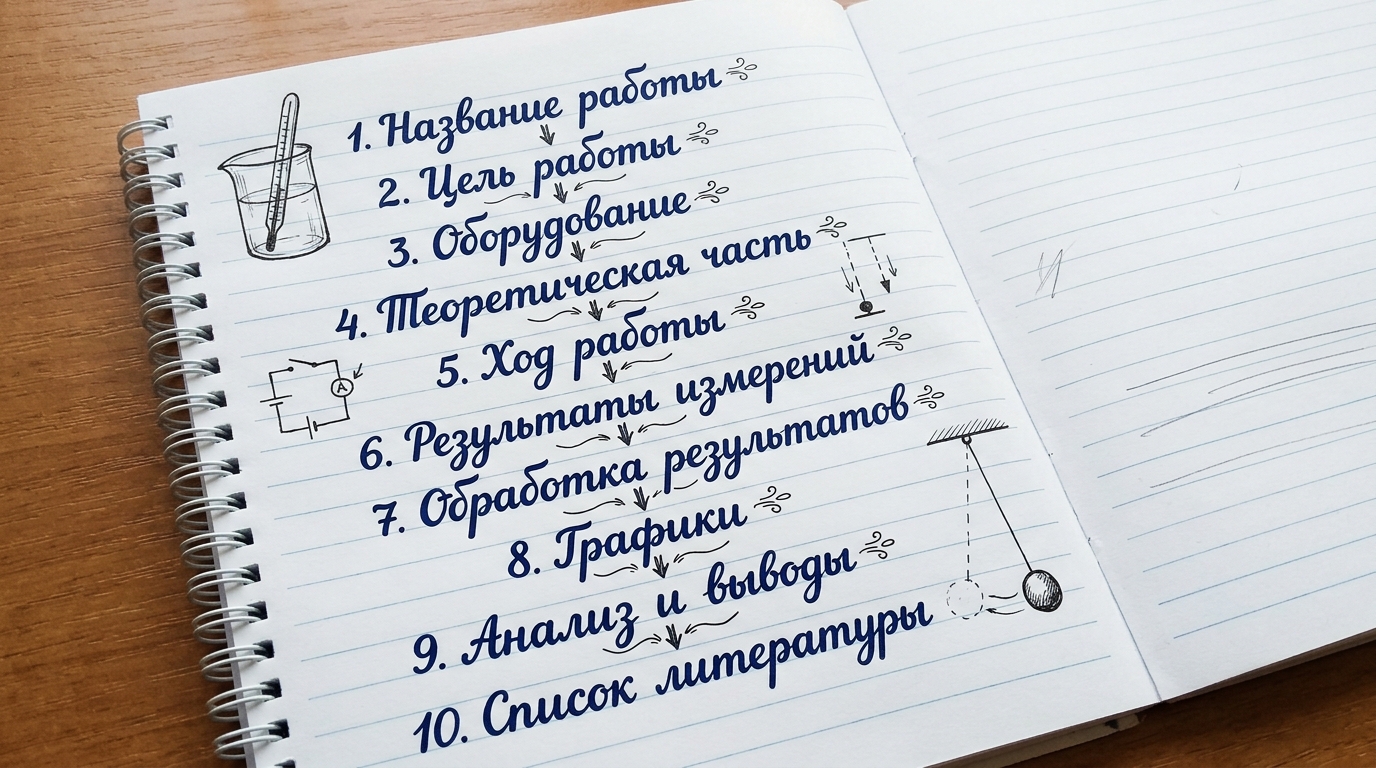 1. Название работы
2. Цель работы
3. Оборудование
4. Теоретическая часть
5. Ход работы
6. Результаты измерений
7. Обработка результатов
8. Графики
9. Анализ и выводы
10. Список литературы
A